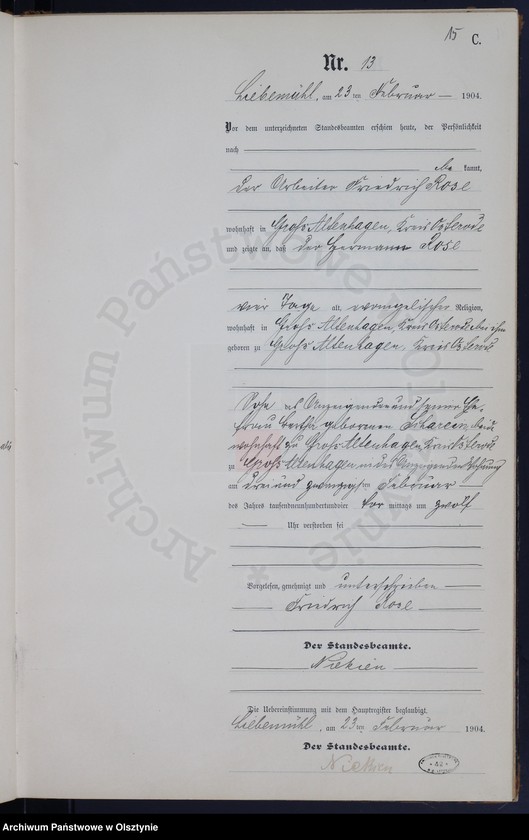 15 C.
Nr. 13
Liebemühl, am 23 ten Februar 1904.
Vor dem unterzeichneten Standesbeamten erschien heute, der Persönlichkeit
nach
kannt,
der Arbeiter Friedrich Rose
wohnhaft in Groß Altenhagen, Kreis Osterode
und zeigte an, daß der Hermann Rose
vier Tage alt, evangelischer Religion,
wohnhaft in Groß Altenhagen, Kreis Osterode bei ihm
geboren zu Groß Altenhagen, Kreis Osterode
Sohn des Anzeigenden und seiner Ehe-
frau Bertha geborenen beide
wohnhaft zu Groß Altenhagen Kreis Osterode
zu Groß Altenhagen in des Anzeigenden Wohnung
am drei und zwanzigsten Februar
des Jahres tausendneunhundertundvier Vor mittags um zwölf
Uhr verstorben sei
Vorgelesen, genehmigt und unterschrieben
Friedrich Rose
Der Standesbeamte.
Die Uebereinstimmung mit dem Hauptregister beglaubigt.
Liebemühl, am 23 ten Februar 1904.
Der Standesbeamte.
Archiwum Państwowe w Olsztynie
Archiwum Państwowe w Olsztynie